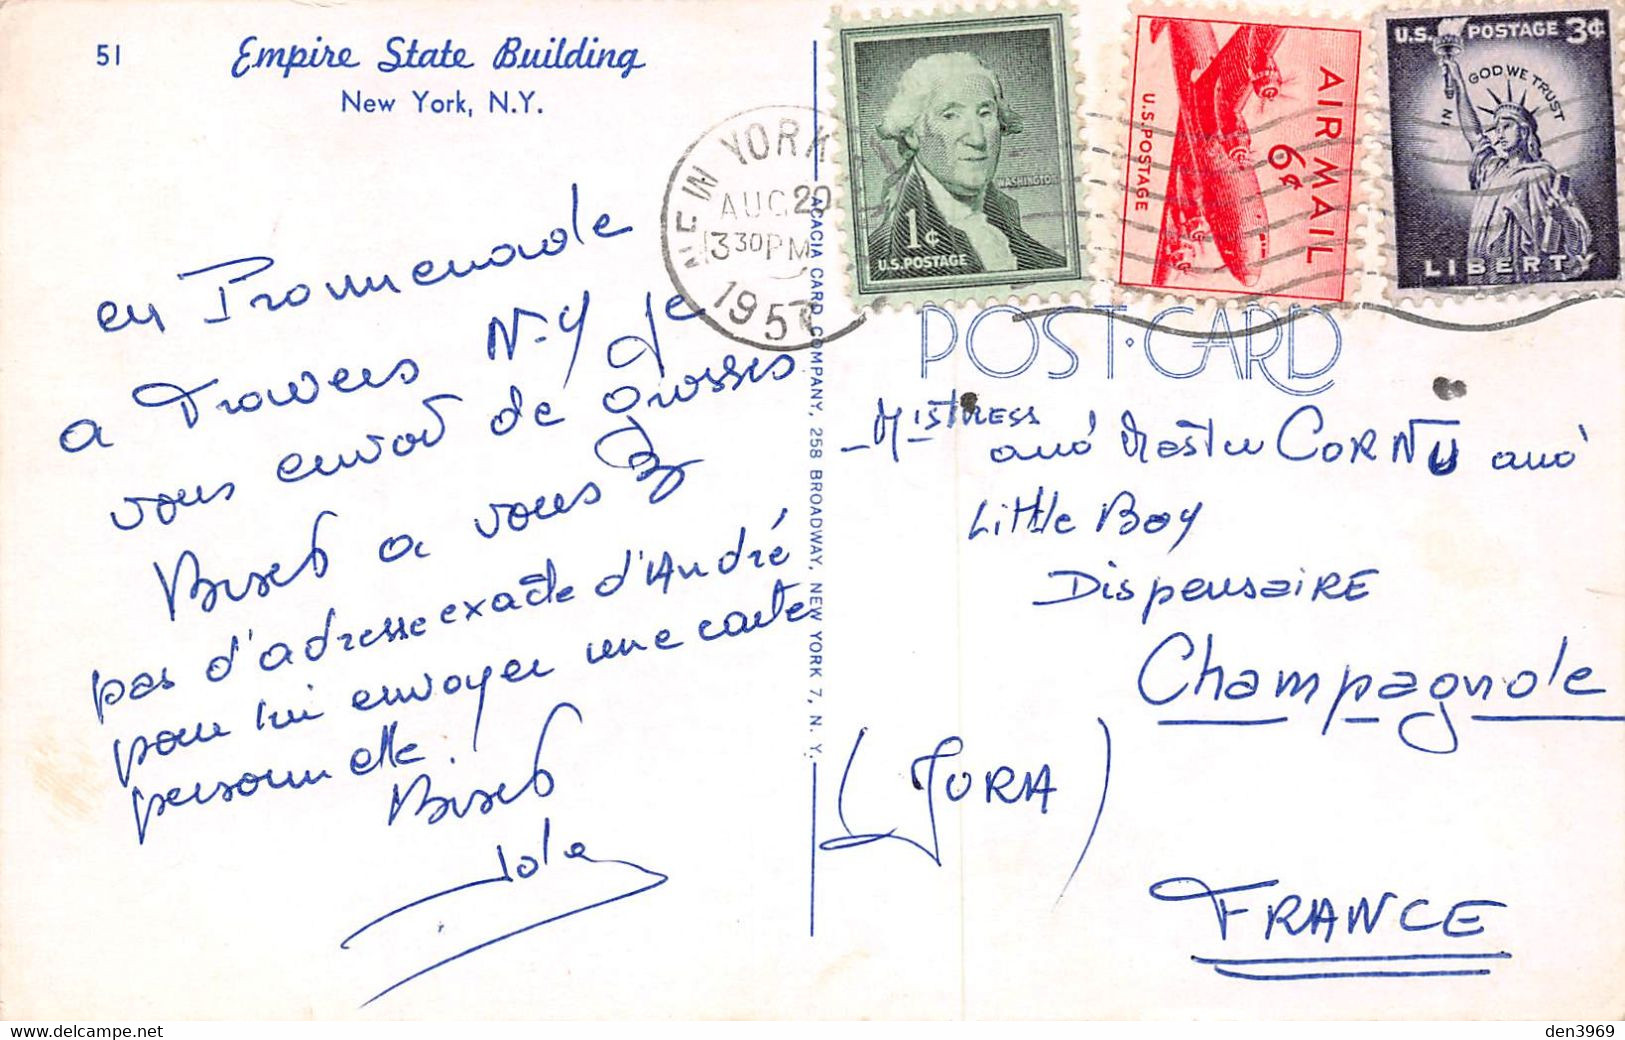 51
Empire State Building
New York, N.Y.
en Promenade
a Travers N-Y je
vous envoi de grosses
Bises a vous 3
pas d'adresse exacte d'André
pour lui envoyer une carte
personnelle.
Bises
NEW YORK
AUG 20
330PM
1957
ACACIA CARD COMPANY, 258 BROADWAY, NEW YORK 7, N. Y.
WASHINGTON
1¢
U.S. POSTAGE
AIR MAIL
6¢
U.S. POSTAGE
U.S. POSTAGE 3¢
IN GOD WE TRUST
LIBERTY
POST·CARD
Mistress
and Master CORNU and
Little Boy
Dispensaire
Champagnole
(JURA)
FRANCE
den3969